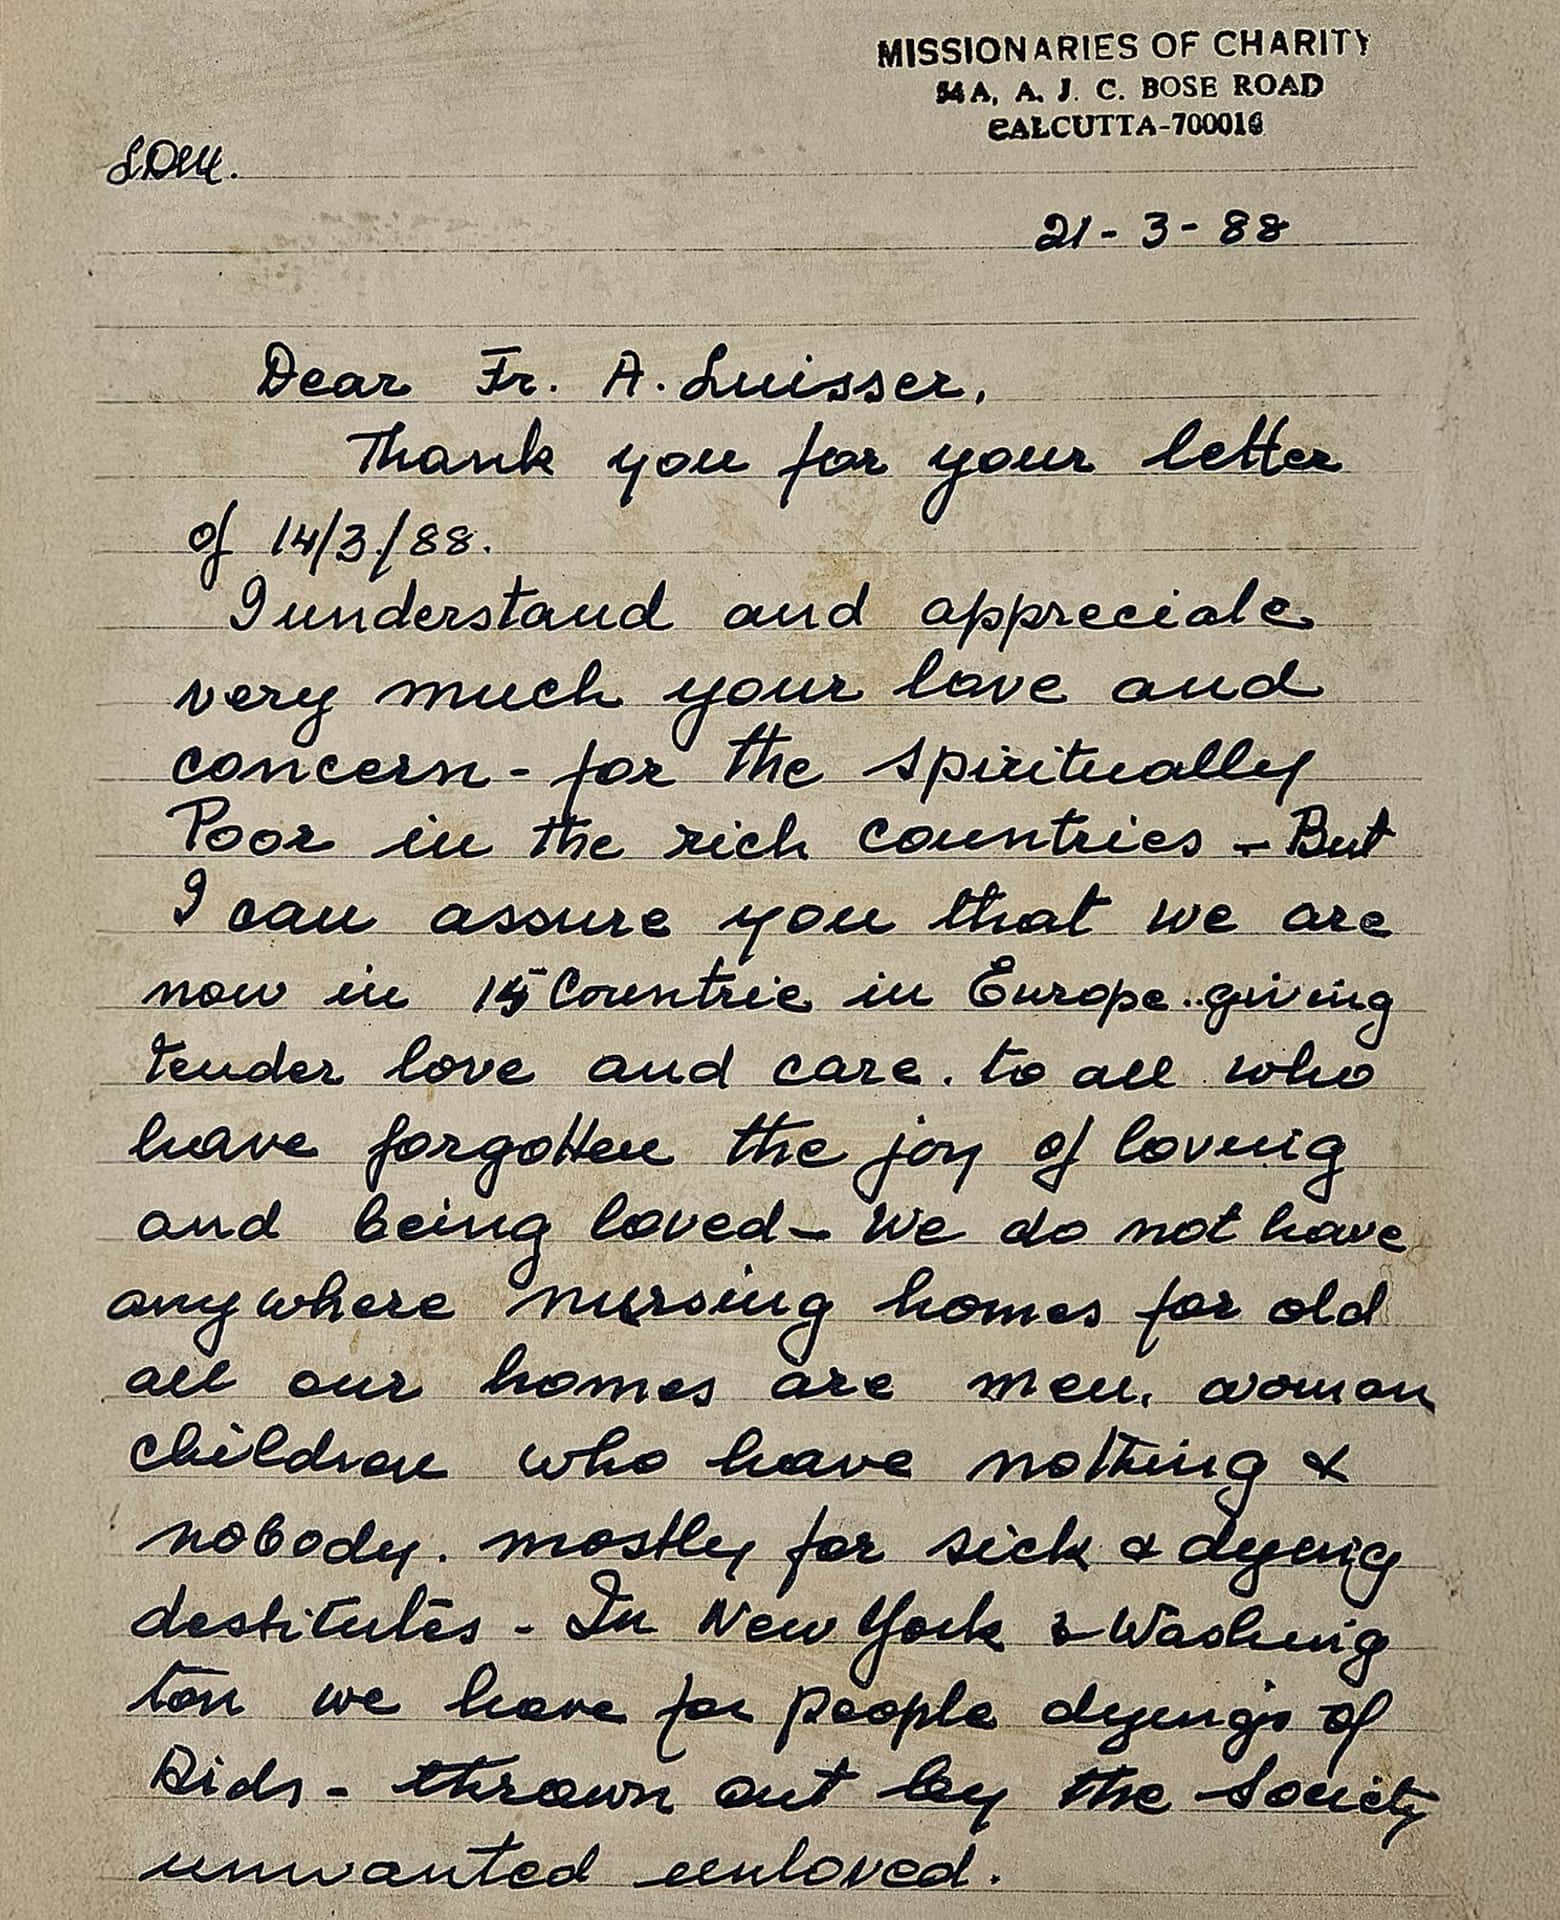 MISSIONARIES OF CHARITY
54A, A. J. C. BOSE ROAD
CALCUTTA-700016
LDM.
21-3-88
Dear Fr. A. Luisser,
Thank you for your letter
of 14/3/88.
I understand and appreciate
very much your love and
concern - for the spiritually
Poor in the rich countries - But
I can assure you that we are
now in 15 Countrie in Europe.. giving
tender love and care. to all who
have forgotten the joy of loving
and being loved - We do not have
anywhere nursing homes for old
all our homes are men, woman
children who have nothing &
nobody. mostly for sick & dyeing
destitutes - In New York & Washing
ton we have for people dyeing of
Aids - thrown out by the Society
unwanted unloved.